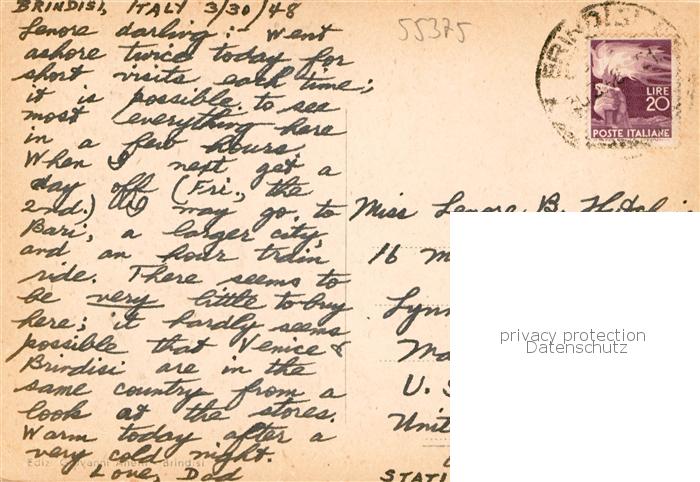 BRINDISI, ITALY 3/30/48
Lenore darling:- Went
ashore twice today for
short visits each time;
it is possible to see
most everything here
in a few hours.
When I next get a
day off (Fri., the
2nd.) I may go to
Bari, a larger city,
and an hour train
ride. There seems to
be very little to buy
here; it hardly seems
possible that Venice &
Brindisi are in the
same country from a
look at the stores.
Warm today after a
very cold night.
Love, Dad
Ediz. Giovanni - Brindisi
55375
BRINDISI
LIRE
20
POSTE ITALIANE
Miss Lenore B.
16 M
Lynn
Ma
U. S
Unit
STATI
privacy protection
Datenschutz